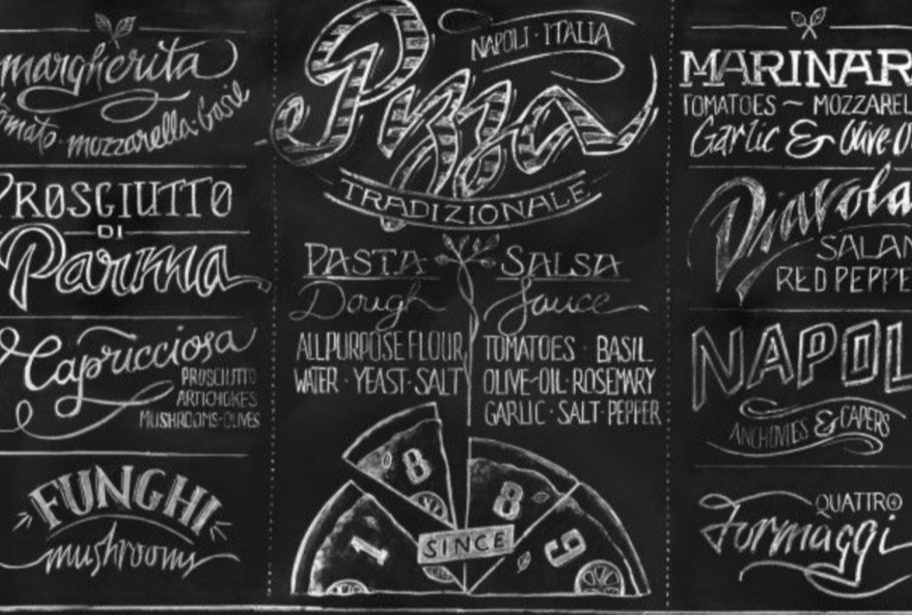 margherita
tomato · mozzarella · basil
PROSCIUTTO
DI
Parma
Capricciosa
PROSCIUTTO
ARTICHOKES
MUSHROOMS · OLIVES
FUNGHI
mushrooms
NAPOLI · ITALIA
Pizza
TRADIZIONALE
PASTA
Dough
ALLPURPOSE FLOUR
WATER · YEAST · SALT
SALSA
Sauce
TOMATOES · BASIL
OLIVE-OIL · ROSEMARY
GARLIC · SALT · PEPPER
1 8 8 9
SINCE
MARINAR
TOMATOES ~ MOZZAREL
Garlic & Olive O
Diavola
SALAM
RED PEPPE
NAPOL
ANCHOVIES & CAPERS
QUATTRO
Formaggi